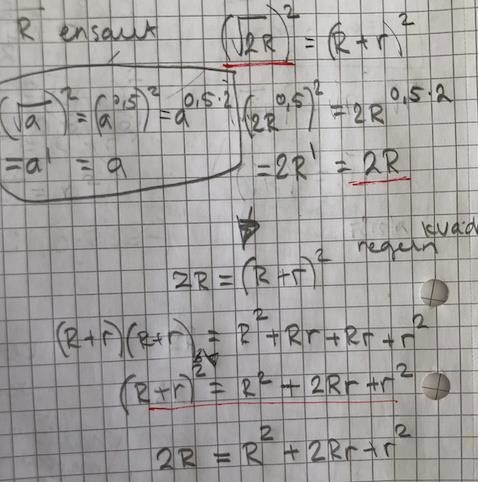 R ensamt (√2R)² = (R+r)²
(√a)² = (a^0,5)² = a^0,5·2
= a¹ = a
(2R^0,5)² = 2R^0,5·2
= 2R¹ = 2R
kvad
regeln
2R = (R+r)²
(R+r)(R+r) = R² + Rr + Rr + r²
(R+r)² = R² + 2Rr + r²
2R = R² + 2Rr + r²